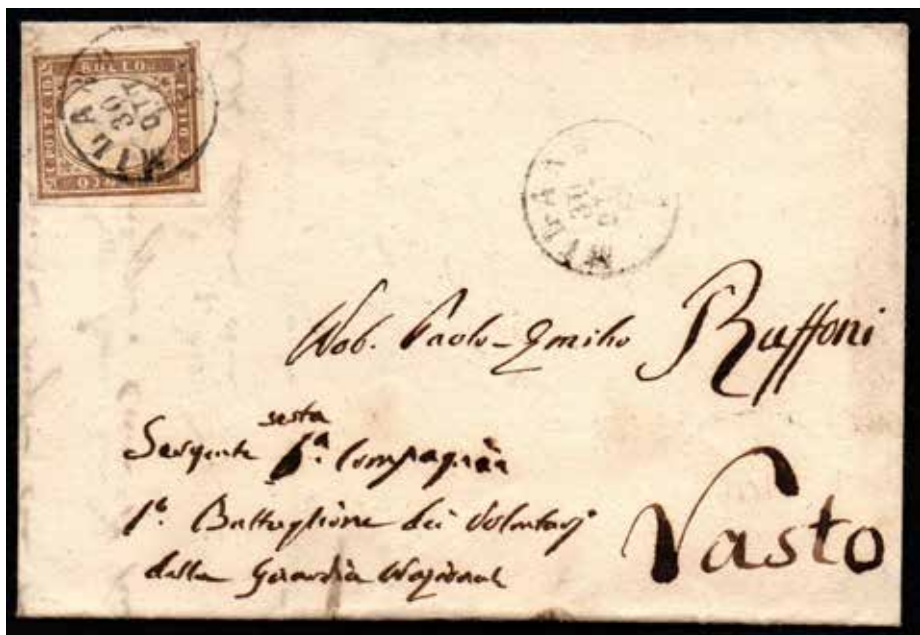 BOLLO
C. POSTE 10
MILANO
30
OTT
MILA
30
Nob. Paolo-Emilio Ruffoni
sesta
Sergente 6ª. Compagnia
1º. Battaglione dei Volontarj
della Guardia Nazional
Vasto